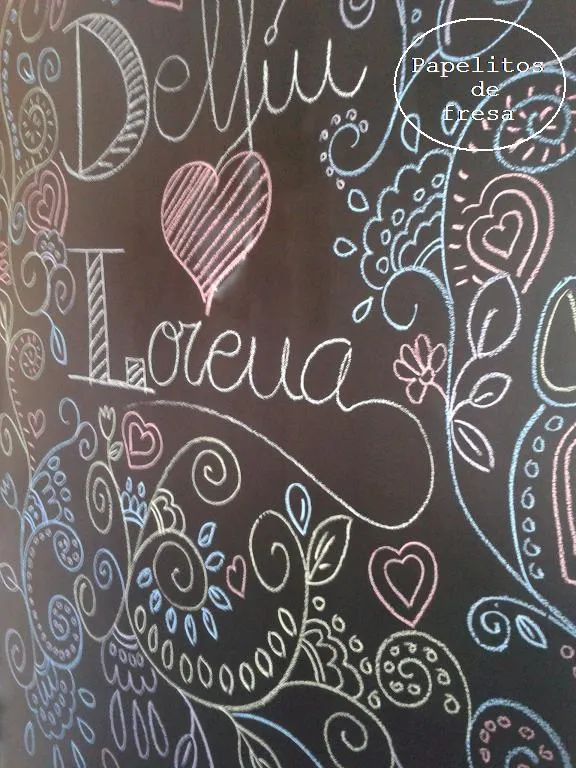 Delfin
Papelitos
de
fresa
Lorena